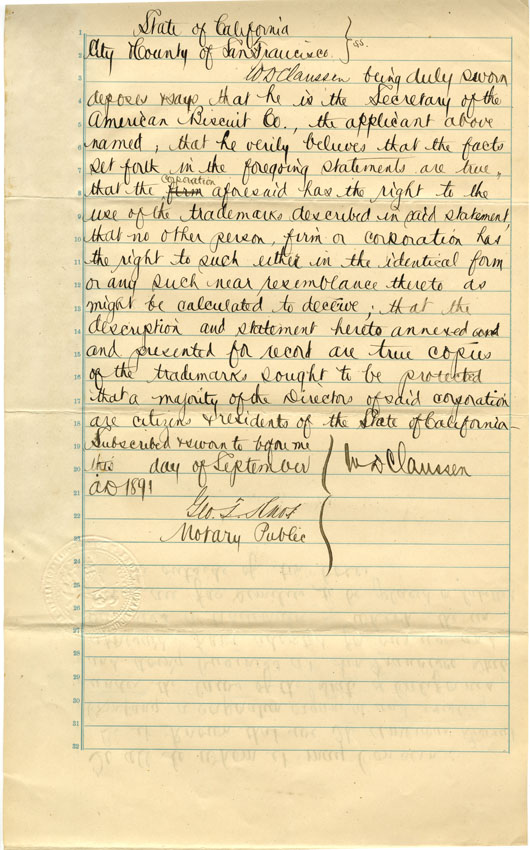 State of California
City & County of San Francisco } ss.
W D Claussen being duly sworn
deposes & says that he is the Secretary of the
American Biscuit Co., the applicant above
named, that he verily believes that the facts
set forth in the foregoing statements are true,
that the firm corporation aforesaid has the right to the
use of the trademarks described in said statement,
that no other person, firm or corporation has
the right to such either in the identical form
or any such near resemblance thereto as
might be calculated to deceive; that the
description and statement hereto annexed and
and presented for record are true copies
of the trademarks sought to be protected
that a majority of the Directors of said corporation
are citizens & residents of the State of California
Subscribed & sworn to before me
this day of September
AD 1891
W D Claussen
Geo. T. Knox
Notary Public
1
2
3
4
5
6
7
8
9
10
11
12
13
14
15
16
17
18
19
20
21
22
23
24
25
26
27
28
29
30
31
32